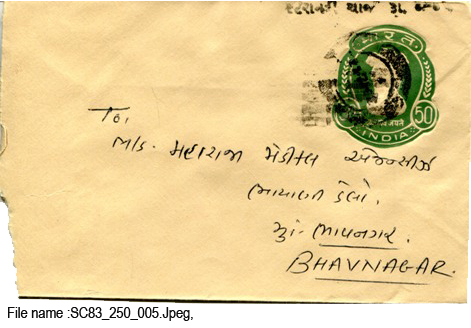 भारत
50
INDIA
To,
M/s. મહારાજા મેડીકલ એજન્સીઝ
ડેલો.
મું- ભાવનગર.
BHAVNAGAR.
File name :SC83_250_005.Jpeg,